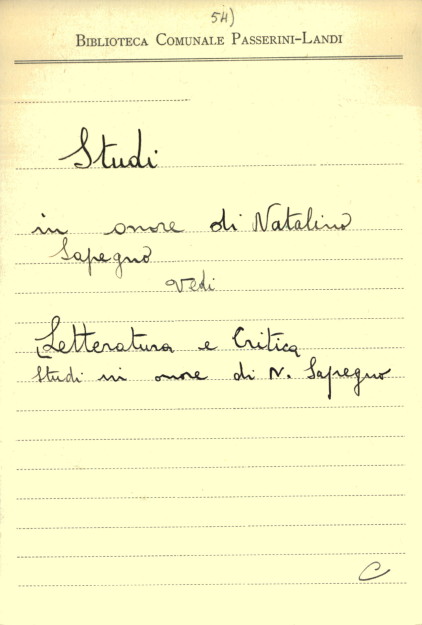 54)
BIBLIOTECA COMUNALE PASSERINI-LANDI
Studi
in onore di Natalino
Sapegno
vedi
Letteratura e Critica
Studi in onore di N. Sapegno
C